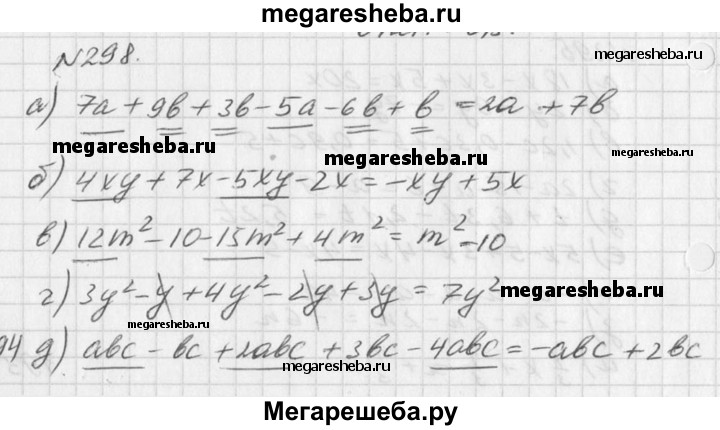 megaresheba.ru
№298.
megaresheba.ru
а) 7a + 9b + 3b - 5a - 6b + b = 2a + 7b
megaresheba.ru
megaresheba.ru
б) 4xy + 7x - 5xy - 2x = -xy + 5x
в) 12m² - 10 - 15m² + 4m² = m² - 10
г) 3y² - y + 4y² - 2y + 3y = 7y²
megaresheba.ru
megaresheba.ru
94 д) abc - bc + 2abc + 3bc - 4abc = -abc + 2bc
megaresheba.ru
Мегарешеба.ру